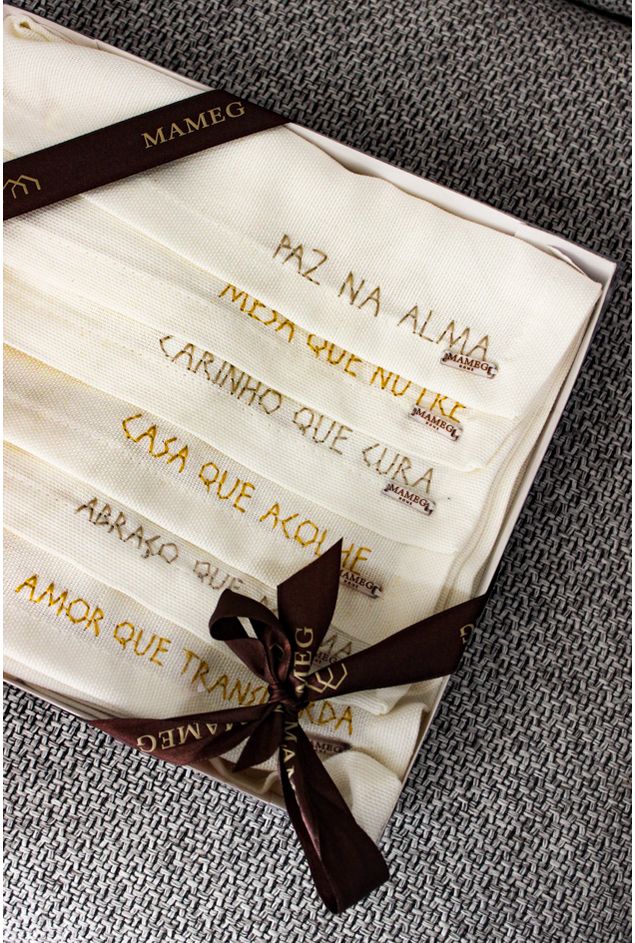 MAMEG
PAZ NA ALMA
MAMEG
HOME
MESA QUE NUTRE
MAMEG
HOME
CARINHO QUE CURA
MAMEG
HOME
CASA QUE ACOLHE
MAMEG
ABRAÇO QUE
AMOR QUE TRANSBORDA
MAMEG
MAMEG
MAMEG